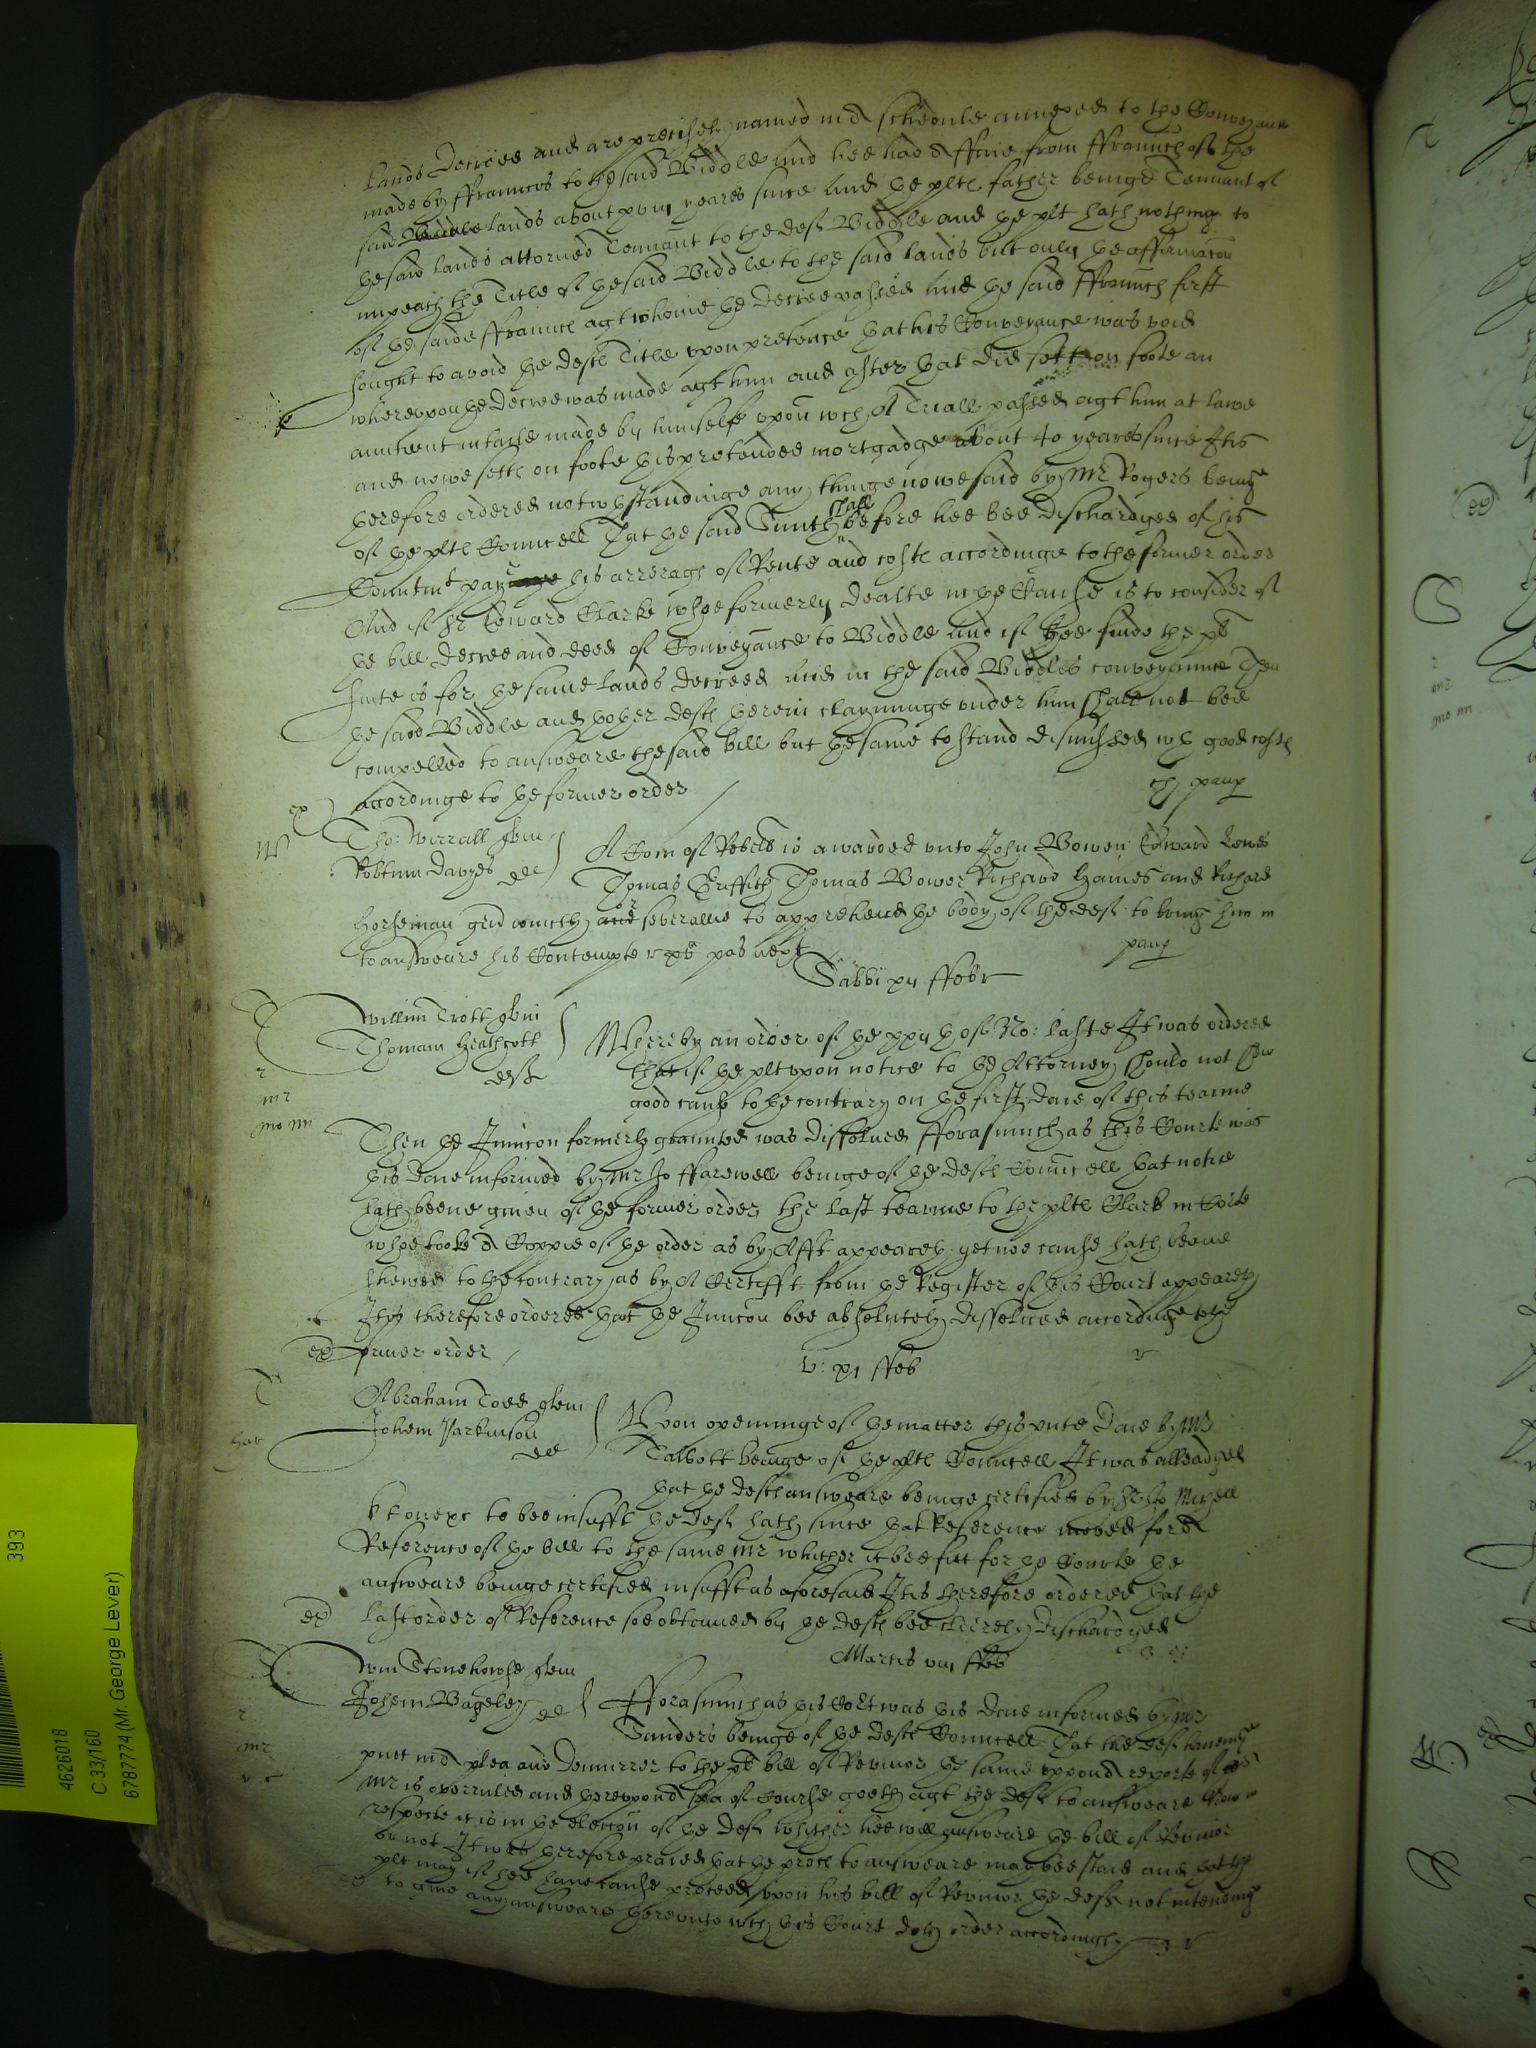 lands decreed and are precisely named in a schedule annexed to the Conveyaunce
made by ffraunces to the said Widdle and hee had a ffine from ffraunch of the
said lands about xviij yeares since And the plts father beinge Tennant of
the said lands attorned Tennant to the deft Widdle and the plt hath nothing to
impeach the Title of the said Widdle to the said lands but only the affirmacon
of the saide ffraunch agt whome the decree passed And the said ffraunch first
sought to avoid the defts Title upon pretence that his Conveyance was void
whereupon the decree was made agt him and after that did sett on foote an
auncient made by himselfe upon wch A Triall passed agt him at lawe
and nowe setts on foote this pretended mortgadge about 40 yeares since It is
therefore ordered notwthstandinge any thinge nowe said by Mr Rogers beinge
of the plts Councell That the said shall before hee bee discharged of his
Contempt pay his arrerags of Rente and costs accordinge to the former order
And if Sr Edward Clarke whoe formerly dealte in the Cause is to consider of
the bill decree and deed of Conveyance to Widdle And if hee finde the pnt
suite is for the same lands decreed and in the said Widdles conveyaunce Then
the said Widdle and thother defts herein clayminge under him shall not bee
compelled to answeare the said bill but the same to stand dismissed wth good costs
accordinge to the former order
ex
Tho: Wirrall quer
Robtum Davyes def
A Com of Rebell is awarded unto John Bowen Edward Lewes
Thomas Griffith Thomas Bower Richard Haines and Richard
Horseman and severallie to apprehend the body of the deft to bring him in
to answeare his Contempte pas next
Sabbi xij ffebr
Willim Trott quer
Thomam Heathcott
deft
Whereby an order of the xxij th of No: laste It was ordered
that if the plt upon notice to the Attorney should not shew
good cause to the contrary on the first daie of this tearme
Then the Iniuncon formerly graunted was dissolved fforasmuch as this Courte was
this daie informed by Mr Jo ffarewell beinge of the defts Councell that notice
hath beene given of the former order the last tearme to the plts Clark in Corte
whoe tooke a Coppie of the order as by Afft appeareth yet noe cause hath beene
shewed to the contrary as by A Certifft from the Register of this Court appeareth
It is therefore ordered that the Iniuncon bee absolutely dissolved accordinge to the
former order
ex
v: xj ffeb
Abraham quer
Johem Parkinson
def
Upon openinge of the matter this pnte daie by Mr
Talbott beinge of the plts Councell It was alleadged
that the defts answeare beinge certified by Sr Jo Mychell
kt one &c to bee insufft the deft hath since that Reference moved for a
Reference of the bill to the same Mr whither it bee fitt for the Courte the
answeare beinge certified insufft as aforesaid It is therefore ordered that the
last order of Reference soe obtained by the defts bee cleerely dischardged
ex
Martis viij ffeb
Wm Stonehowse quer
Johem Bageley def
fforasmuch as this Cort was this daie informed by Mr
Sanders beinge of the defts Councell That the deft haveinge
putt in a plea and demurrer to the plts bill of Revivor the same uppon a reporte of the
Mr is overruled and thereupon a spa of Course goeth agt the deft to answeare Now in
respecte it is in the eleccon of the deft whither hee will answeare the bill of Revivor
or not It was therefore praied that the proces to answeare may bee staid and that the
plt may if hee have cause proceed upon his bill of Revivor the deft not intendinge
to give any answeare thereunto wch this Court doth order accordingly
393
4626018
C 33/160
6787774 (Mr. George Lever)